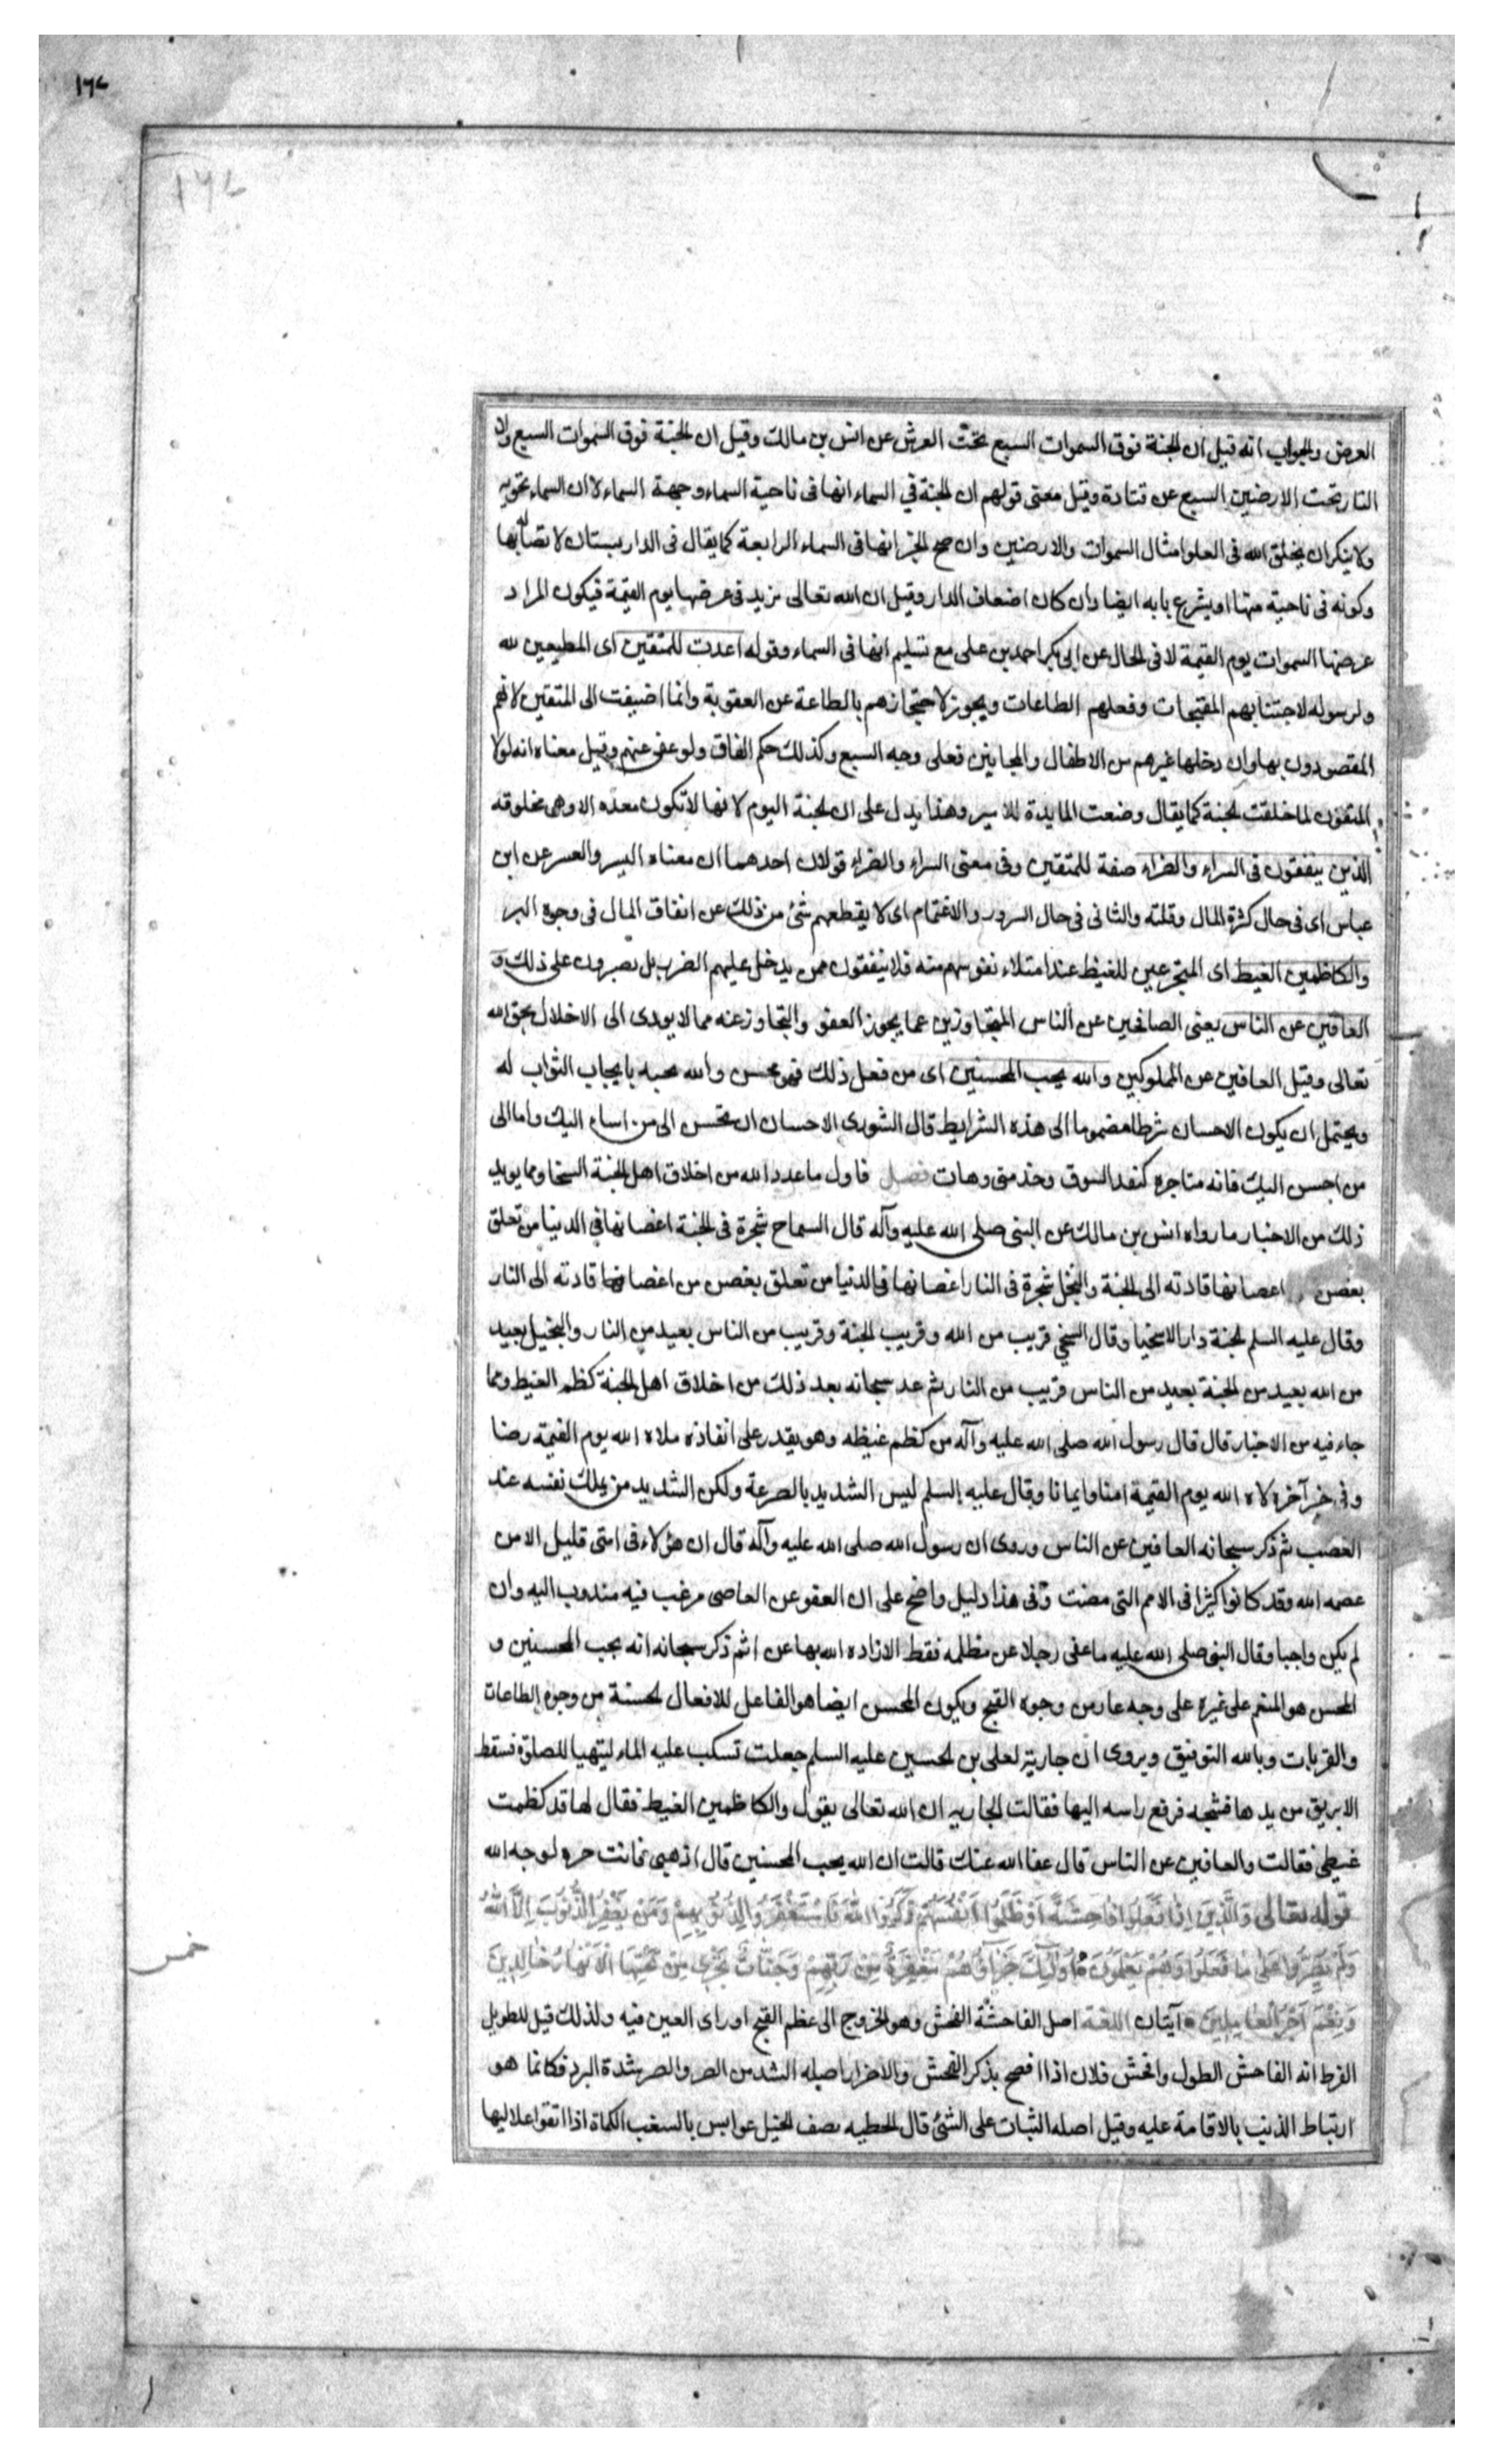 ١٦٧
١٦٧
العرض والجواب انه قيل ان الجنة فوق السموات السبع تحت العرش عن انس بن مالك وقيل ان الجنة فوق السموات السبع وان
النار تحت الارضين السبع عن قتادة وقيل معنى قولهم ان الجنة في السماء انها في ناحية السماء وجهة السماء لا ان السماء تحويه
ولا ينكر ان يخلق الله في العلو امثال السموات والارضين وان صح الخبر انها في السماء الرابعة كما يقال في الدار بستان لاتصاله بها
وكونه في ناحية منها او يشرع بابه ايضا وان كان اضعاف الدار وقيل ان الله تعالى يزيد في عرضها يوم القيمة فيكون المراد
عرضها السموات يوم القيمة لا في الحال عن ابي بكر احمد بن على مع تسليم انها في السماء وقوله اعدت للمتقين اى المطيعين لله
ولرسوله لاجتنابهم المقبحات وفعلهم الطاعات ويجوز لاحتجازهم بالطاعة عن العقوبة وانما اضيفت الى المتقين لانهم
المقصودون بها وان دخلها غيرهم من الاطفال والمجانين فعلى وجه التبع وكذلك حكم الفاق ولو عفى عنهم وقيل معناه انه لولا
المتقون لما خلقت الجنة كما يقال وضعت المايدة للامير وهذا يدل على ان الجنة اليوم لانها لا تكون معده الا وهى مخلوقه
الذين ينفقون في السراء والضراء صفة للمتقين وفى معنى السراء والضراء قولان احدهما ان معناه اليسر والعسر عن ابن
عباس اى فى حال كثرة المال وقلته والثانى فى حال السرور والاغتمام اى لا يقطعهم شئ من ذلك عن انفاق المال فى وجوه البر
والكاظمين الغيظ اى المتجرعين للغيظ عند امتلاء نفوسهم منه فلا ينفقون ممن يدخل عليهم الضرر بل يصبرون على ذلك و
العافين عن الناس يعنى الصافحين عن الناس المتجاوزين عما يجوز العفو والتجاوز عنه مما لا يودى الى الاخلال بحق الله
تعالى وقيل العافين عن المملوكين والله يحب المحسنين اى من فعل ذلك فهو محسن والله محبه بايجاب الثواب له
ويحتمل ان يكون الاحسان شرطا مضموما الى هذه الشرايط قال الثورى الاحسان ان تحسن الى من اساء اليك واما الى
من احسن اليك فانه متاجره كنقد السوق وخذ منى وهات فصل فاول ما عدد الله من اخلاق اهل الجنة السخا ومما يويد
ذلك من الاخبار ما رواه انس بن مالك عن النبى صلى الله عليه وآله قال السماح شجرة فى الجنة اغصانها فى الدنيا من تعلق
بغصن اعصانها قادته الى الجنة والبخل شجرة فى النار اغصانها فى الدنيا من تعلق بغصن من اغصانها قادته الى النار
وقال عليه السلم الجنة دار الاسخيا وقال السخي قريب من الله وقريب الجنة وقريب من الناس بعيد من النار والبخيل بعيد
من الله بعيد من الجنة بعيد من الناس قريب من النار ثم عد سبحانه بعد ذلك من اخلاق اهل الجنة كظم الغيظ ومما
جاء فيه من الاخبار قال قال رسول الله صلى الله عليه وآله من كظم غيظه وهو يقدر على انفاذه ملاه الله يوم القيمة رضا
وفى خبر آخر ملاه الله يوم القيمة امنا وايمانا وقال عليه السلم ليس الشديد بالصرعة ولكن الشديد من يملك نفسه عند
الغضب ثم ذكر سبحانه العافين عن الناس وروى ان رسول الله صلى الله عليه وآله قال ان هؤلاء فى امتى قليل الا من
عصمه الله وقد كانوا كثيرا فى الامم التى مضت وفى هذا دليل واضح على ان العفو عن العاصى مرغب فيه مندوب اليه وان
لم يكن واجبا وقال النبى صلى الله عليه ما عفى رجلا عن مظلمه فقط الا زاده الله بها عن ا ثم ذكر سبحانه انه يحب المحسنين و
المحسن هو المنعم على غيره على وجه عار من وجوه القبح ويكون المحسن ايضا هو الفاعل للافعال الحسنة من وجوه الطاعات
والقربات وبالله التوفيق ويروى ان جارية لعلى بن الحسين عليه السلم جعلت تسكب عليه الماء ليتهيا للصلوة فسقط
الابريق من يدها فشجه فرفع راسه اليها فقالت الجاريه ان الله تعالى يقول والكاظمين الغيظ فقال لها قد كظمت
غيظى فقالت والعافين عن الناس قال عفا الله عنك قالت ان الله يحب المحسنين قال اذهبى فانت حره لوجه الله
قوله تعالى وَالَّذِينَ اِذَا فَعَلُوا فَاحِشَةً اَوْ ظَلَمُوا اَنْفُسَهُمْ ذَكَرُوا اللهَ فَاسْتَغْفَرُوا لِذُنُوبِهِمْ وَمَنْ يَغْفِرُ الذُّنُوبَ اِلَّا اللهُ
وَلَمْ يُصِرُّوا عَلَى مَا فَعَلُوا وَهُمْ يَعْلَمُونَ اُولَئِكَ جَزَاؤُهُمْ مَغْفِرَةٌ مِنْ رَبِّهِمْ وَجَنَّاتٌ تَجْرِى مِنْ تَحْتِهَا الْاَنْهَارُ خَالِدِينَ
وَنِعْمَ اَجْرُ الْعَامِلِينَ آيتان اللغة اصل الفاحشة الفحش وهو الخروج الى عظم القبح او راى العين فيه ولذلك قيل للطويل
الفرط انه الفاحش الطول وافحش فلان اذا افصح بذكر الفحش والاصرار اصله الشد من الصر والصر شدة البرد فكانما هو
ارتباط الذنب بالاقامة عليه وقيل اصله الثبات على الشئ قال الحطيه يصف الخيل عوابس بالسغب الكماة اذا اتقوا علاليها